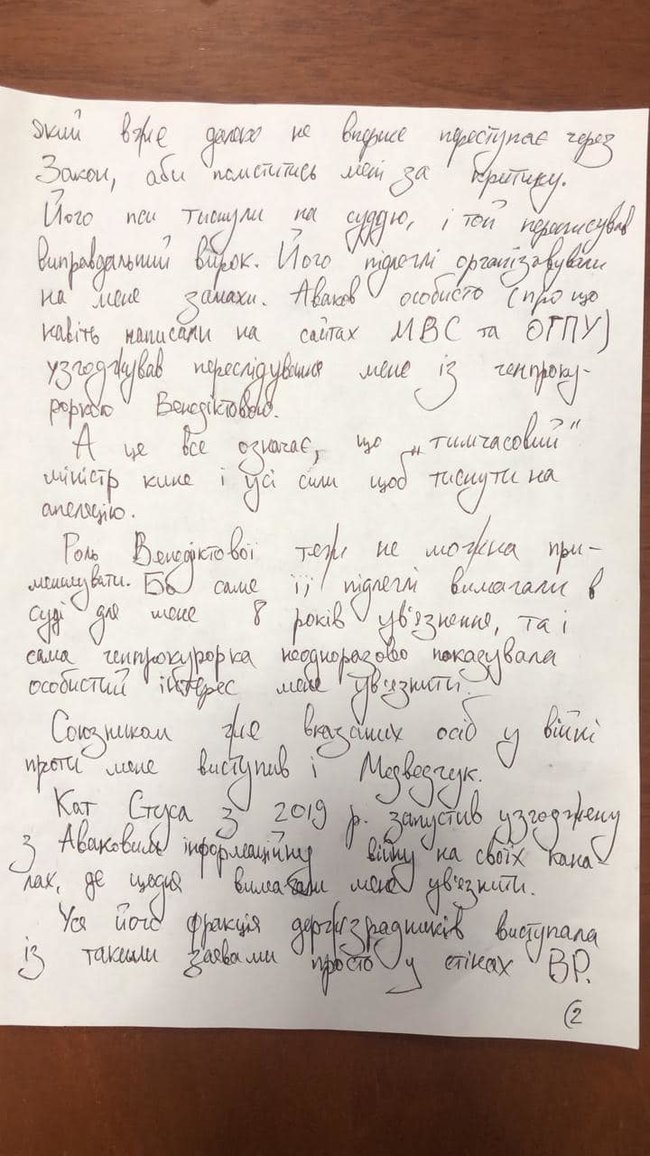 який вже далеко не вперше переступає через
Закон, аби помститись мені за критику.
Його пси тиснули на суддю, і той переписував
виправдальний вирок. Його підлеглі організовували
на мене замахи. Аваков особисто (про що
навіть написали на сайтах МВС та ОГПУ)
узгоджував переслідування мене із генпроку-
роркою Венедіктовою.
А це все означає, що „тимчасовий“
міністр кине і усі сили щоб тиснути на
апеляцію.
Роль Венедіктової теж не можна при-
меншувати. Бо саме її підлеглі вимагали в
суді для мене 8 років ув'язнення, та і
сама генпрокурорка неодноразово показувала
особистий інтерес мене ув'язнити.
Союзником же вказаних осіб у війні
проти мене виступив і Медведчук.
Кат Стуса з 2019 р. запустив узгоджену
з Аваковим інформаційну війну на своїх кана-
лах, де щодня вимагали мене ув'язнити.
Уся його фракція держзрадників виступала
із такими заявами просто у стінах ВР.
(2